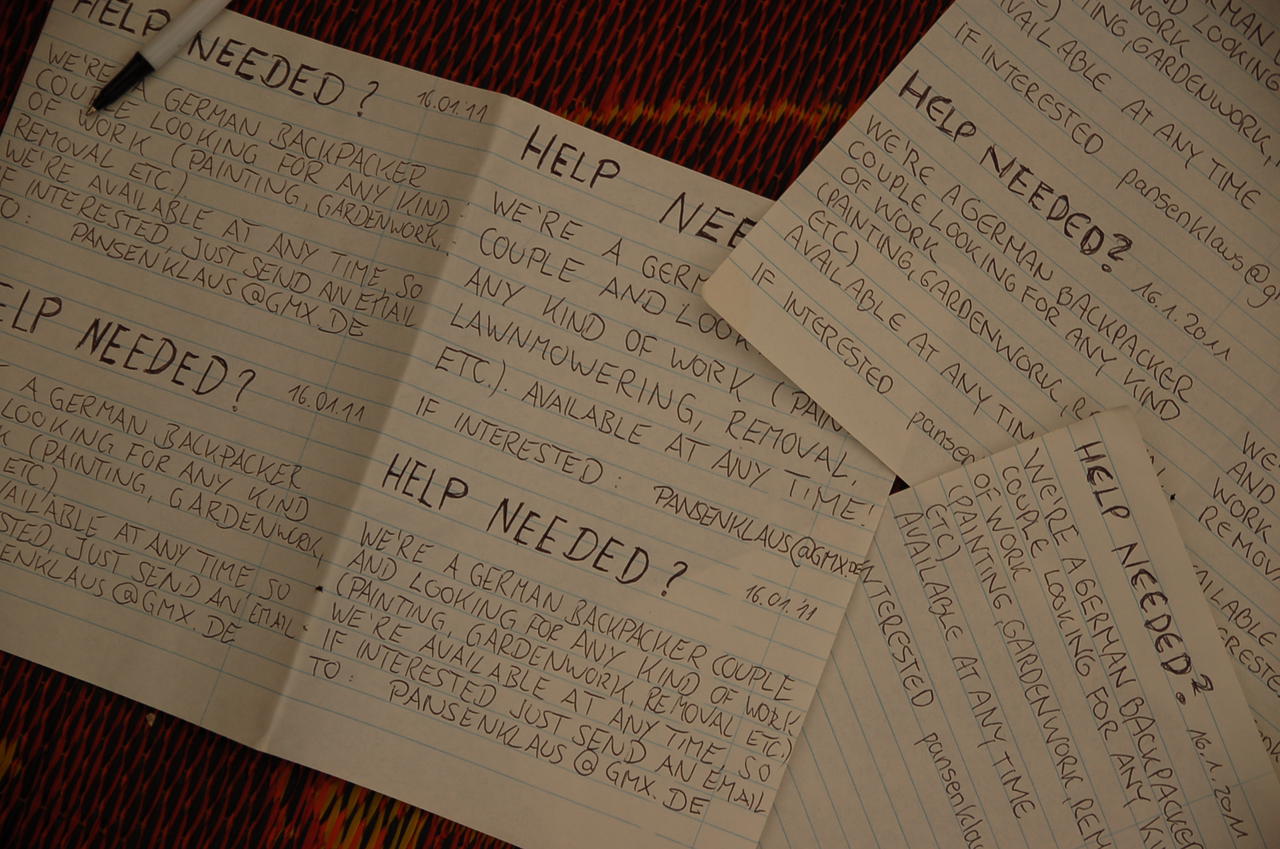 HELP NEEDED?
16.01.11
WE'RE A GERMAN BACKPACKER
COUPLE LOOKING FOR ANY KIND
OF WORK (PAINTING, GARDENWORK,
REMOVAL ETC.)
WE'RE AVAILABLE AT ANY TIME, SO
IF INTERESTED, JUST SEND AN EMAIL
TO: PANSENKLAUS@GMX.DE
HELP NEEDED?
16.01.11
A GERMAN BACKPACKER
LOOKING FOR ANY KIND
(PAINTING, GARDENWORK,
ETC)
AILABLE AT ANY TIME SO
STED, JUST SEND AN EMAIL
ENKLAUS@GMX.DE
HELP NEE
WE'RE A GERM
COUPLE AND LOOK
ANY KIND OF WORK (PAIN
LAWNMOWERING, REMOVAL,
ETC.). AVAILABLE AT ANY TIME!
IF INTERESTED: PANSENKLAUS@GMX.DE
HELP NEEDED?
16.01.'11
WE'RE A GERMAN BACKPACKER COUPLE
AND LOOKING FOR ANY KIND OF WORK
(PAINTING, GARDENWORK, REMOVAL ETC)
WE'RE AVAILABLE AT ANY TIME, SO
IF INTERESTED JUST SEND AN EMAIL
TO: PANSENKLAUS@GMX.DE
RMAN
LOOKING
WORK
TING, GARDENWORK,
AVAILABLE AT ANY TIME
IF INTERESTED pansenklaus@g
HELP NEEDED? 16.1.2011
WE'RE A GERMAN BACKPACKER
COUPLE LOOKING FOR ANY KIND
OF WORK
(PAINTING, GARDENWORK, RE
ETC)
AVAILABLE AT ANY TIM
IF INTERESTED panse
HELP NEEDED? 16.1.2011
WE'RE A GERMAN BACKPACKER
COUPLE LOOKING FOR ANY KI
OF WORK
(PAINTING, GARDENWORK, REM
ETC)
AVAILABLE AT ANY TIME
NTERESTED pansenklau
WE
AND
WORK
REMOV
AILABLE
ERESTE